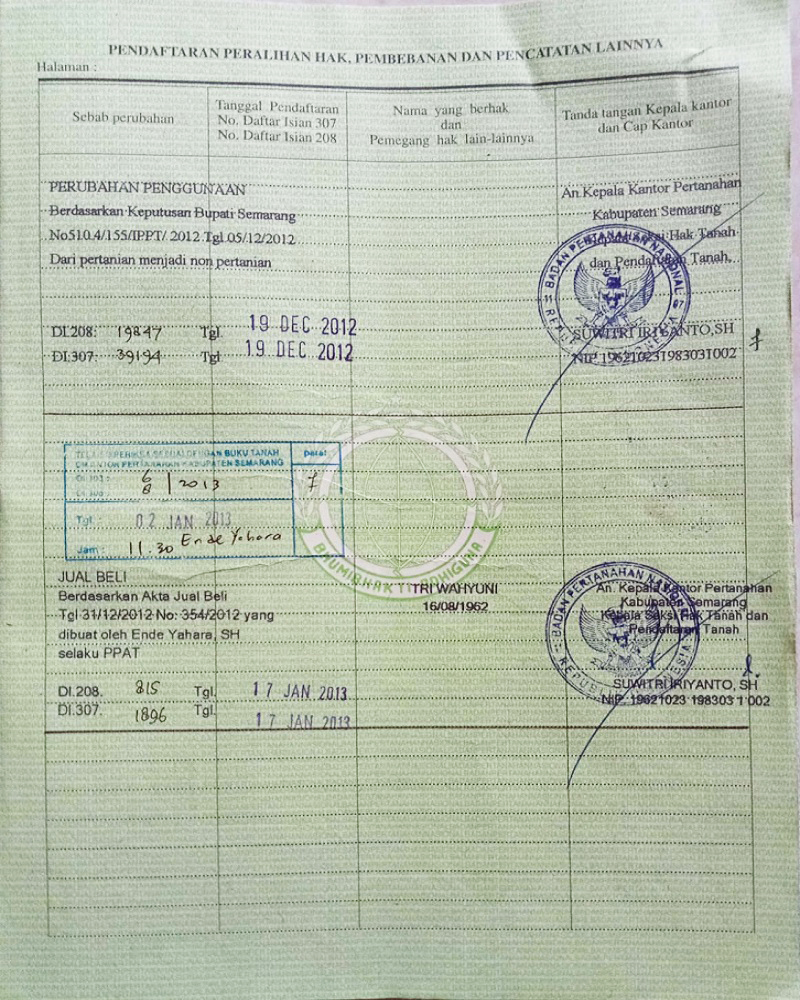 PENDAFTARAN PERALIHAN HAK, PEMBEBANAN DAN PENCATATAN LAINNYA
Halaman :
Sebab perubahan
Tanggal Pendaftaran
No. Daftar Isian 307
No. Daftar Isian 208
Nama yang berhak
dan
Pemegang hak lain-lainnya
Tanda tangan Kepala kantor
dan Cap Kantor
PERUBAHAN PENGGUNAAN
Berdasarkan Keputusan Bupati Semarang
No510.4/155/IPPT/ 2012 Tgl 05/12/2012
Dari pertanian menjadi non pertanian
An.Kepala Kantor Pertanahan
Kabupaten Semarang
Hak Tanah
dan Pendaftaran Tanah,
BADAN PERTANAHAN NASIONAL
REPUBLIK INDONESIA
11
07
DI.208: 19847 Tgl. 19 DEC 2012
DI.307: 39194 Tgl 19 DEC 2012
SUWITRI IRIYANTO,SH
NIP.196210231983031002
TELAH DIPERIKSA SESUAI DENGAN BUKU TANAH
DI KANTOR PERTANAHAN KABUPATEN SEMARANG
Paraf
6/8 / 2013
Tgl : 02 JAN 2013
Jam : 11.30 Ende Yahara
BHUMIBHAKTI ADHIGUNA
JUAL BELI
Berdasarkan Akta Jual Beli
Tgl 31/12/2012 No: 354/2012 yang
dibuat oleh Ende Yahara, SH
selaku PPAT
TRI WAHYUNI
16/08/1962
An. Kepala Kantor Pertanahan
Kabupaten Semarang
Kepala Seksi Hak Tanah dan
Pendaftaran Tanah
BADAN PERTANAHAN NASIONAL
REPUBLIK INDONESIA
DI.208. 815 Tgl. 17 JAN 2013
DI.307. 1896 Tgl. 17 JAN 2013
SUWITRI IRIYANTO, SH
NIP. 19621023 198303 1 002